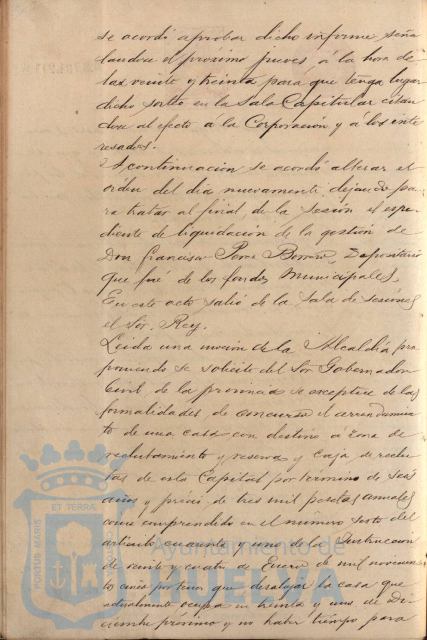 se acordó aprobar dicho informe seña
landose el próximo jueves, á la hora de
las veinte y treinta para que tenga lugar
dicho sorteo en la Sala Capitular citan
dose al efecto á la Corporación y á los inte
resados.
A continuación se acordó alterar el
orden del dia nuevamente dejando pa
ra tratar al final de la sesión el espe
diente de liquidación de la gestión de
Don Francisco Borrero, Depositario
que fué de los fondos Municipales.
En este acto salió de la Sala de sesiones
el Sor. Rey.
Leida una moción de la Alcaldia pro
poniendo se solicite del Sor Gobernador
Civil de la provincia se exceptue de las
formalidades de concurso el arrendamien
to de una casa con destino á zona de
reclutamiento y reserva y Caja de reclu
tas de esta Capital por término de seis
años y précio de tres mil pesetas anuales
como comprendido en el número sexto del
articulo cuarenta y uno de la Instruccion
de veinte y cuatro de Enero de mil novecien
tos cinco por tener que desalojar la casa que
actualmente ocupa en treinta y uno de Di
ciembre próximo y no haber tiempo para
Ayuntamiento de
HUELVA
PORTUS MARIS ET TERRAE